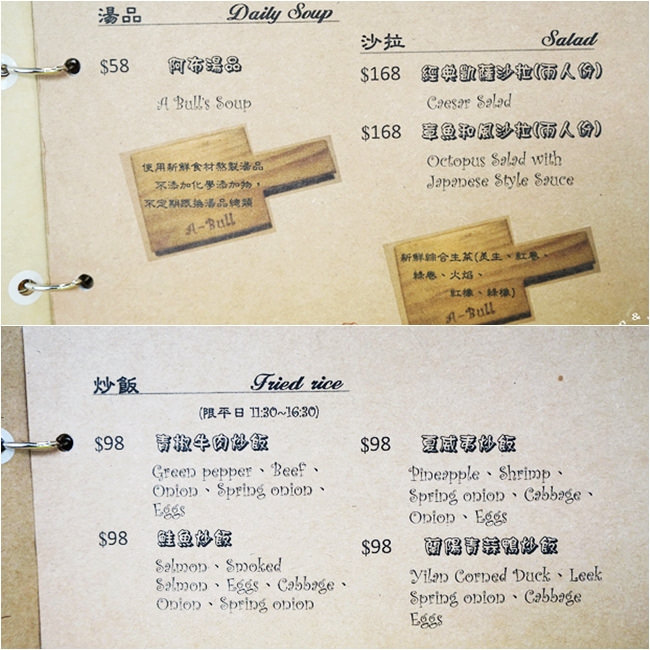 湯品 Daily Soup
$58 阿布湯品
A Bull's Soup
使用新鮮食材熬製湯品
不添加化學添加物，
不定期跟換湯品總類
A-Bull
沙拉 Salad
$168 經典凱薩沙拉(兩人份)
Caesar Salad
$168 章魚和風沙拉(兩人份)
Octopus Salad with
Japanese Style Sauce
新鮮綜合生菜(美生、紅卷、
綠卷、火焰、
紅橡、綠橡)
A-Bull
炒飯 Fried rice
(限平日 11:30~16:30)
$98 青椒牛肉炒飯
Green pepper、Beef、
Onion、Spring onion、
Eggs
$98 鮭魚炒飯
Salmon、Smoked
Salmon、Eggs、Cabbage、
Onion、Spring onion
$98 夏威夷炒飯
Pineapple、Shrimp、
Spring onion、Cabbage、
Onion、Eggs
$98 蘭陽青蒜鴨炒飯
Yilan Corned Duck、Leek
Spring onion、Cabbage
Eggs